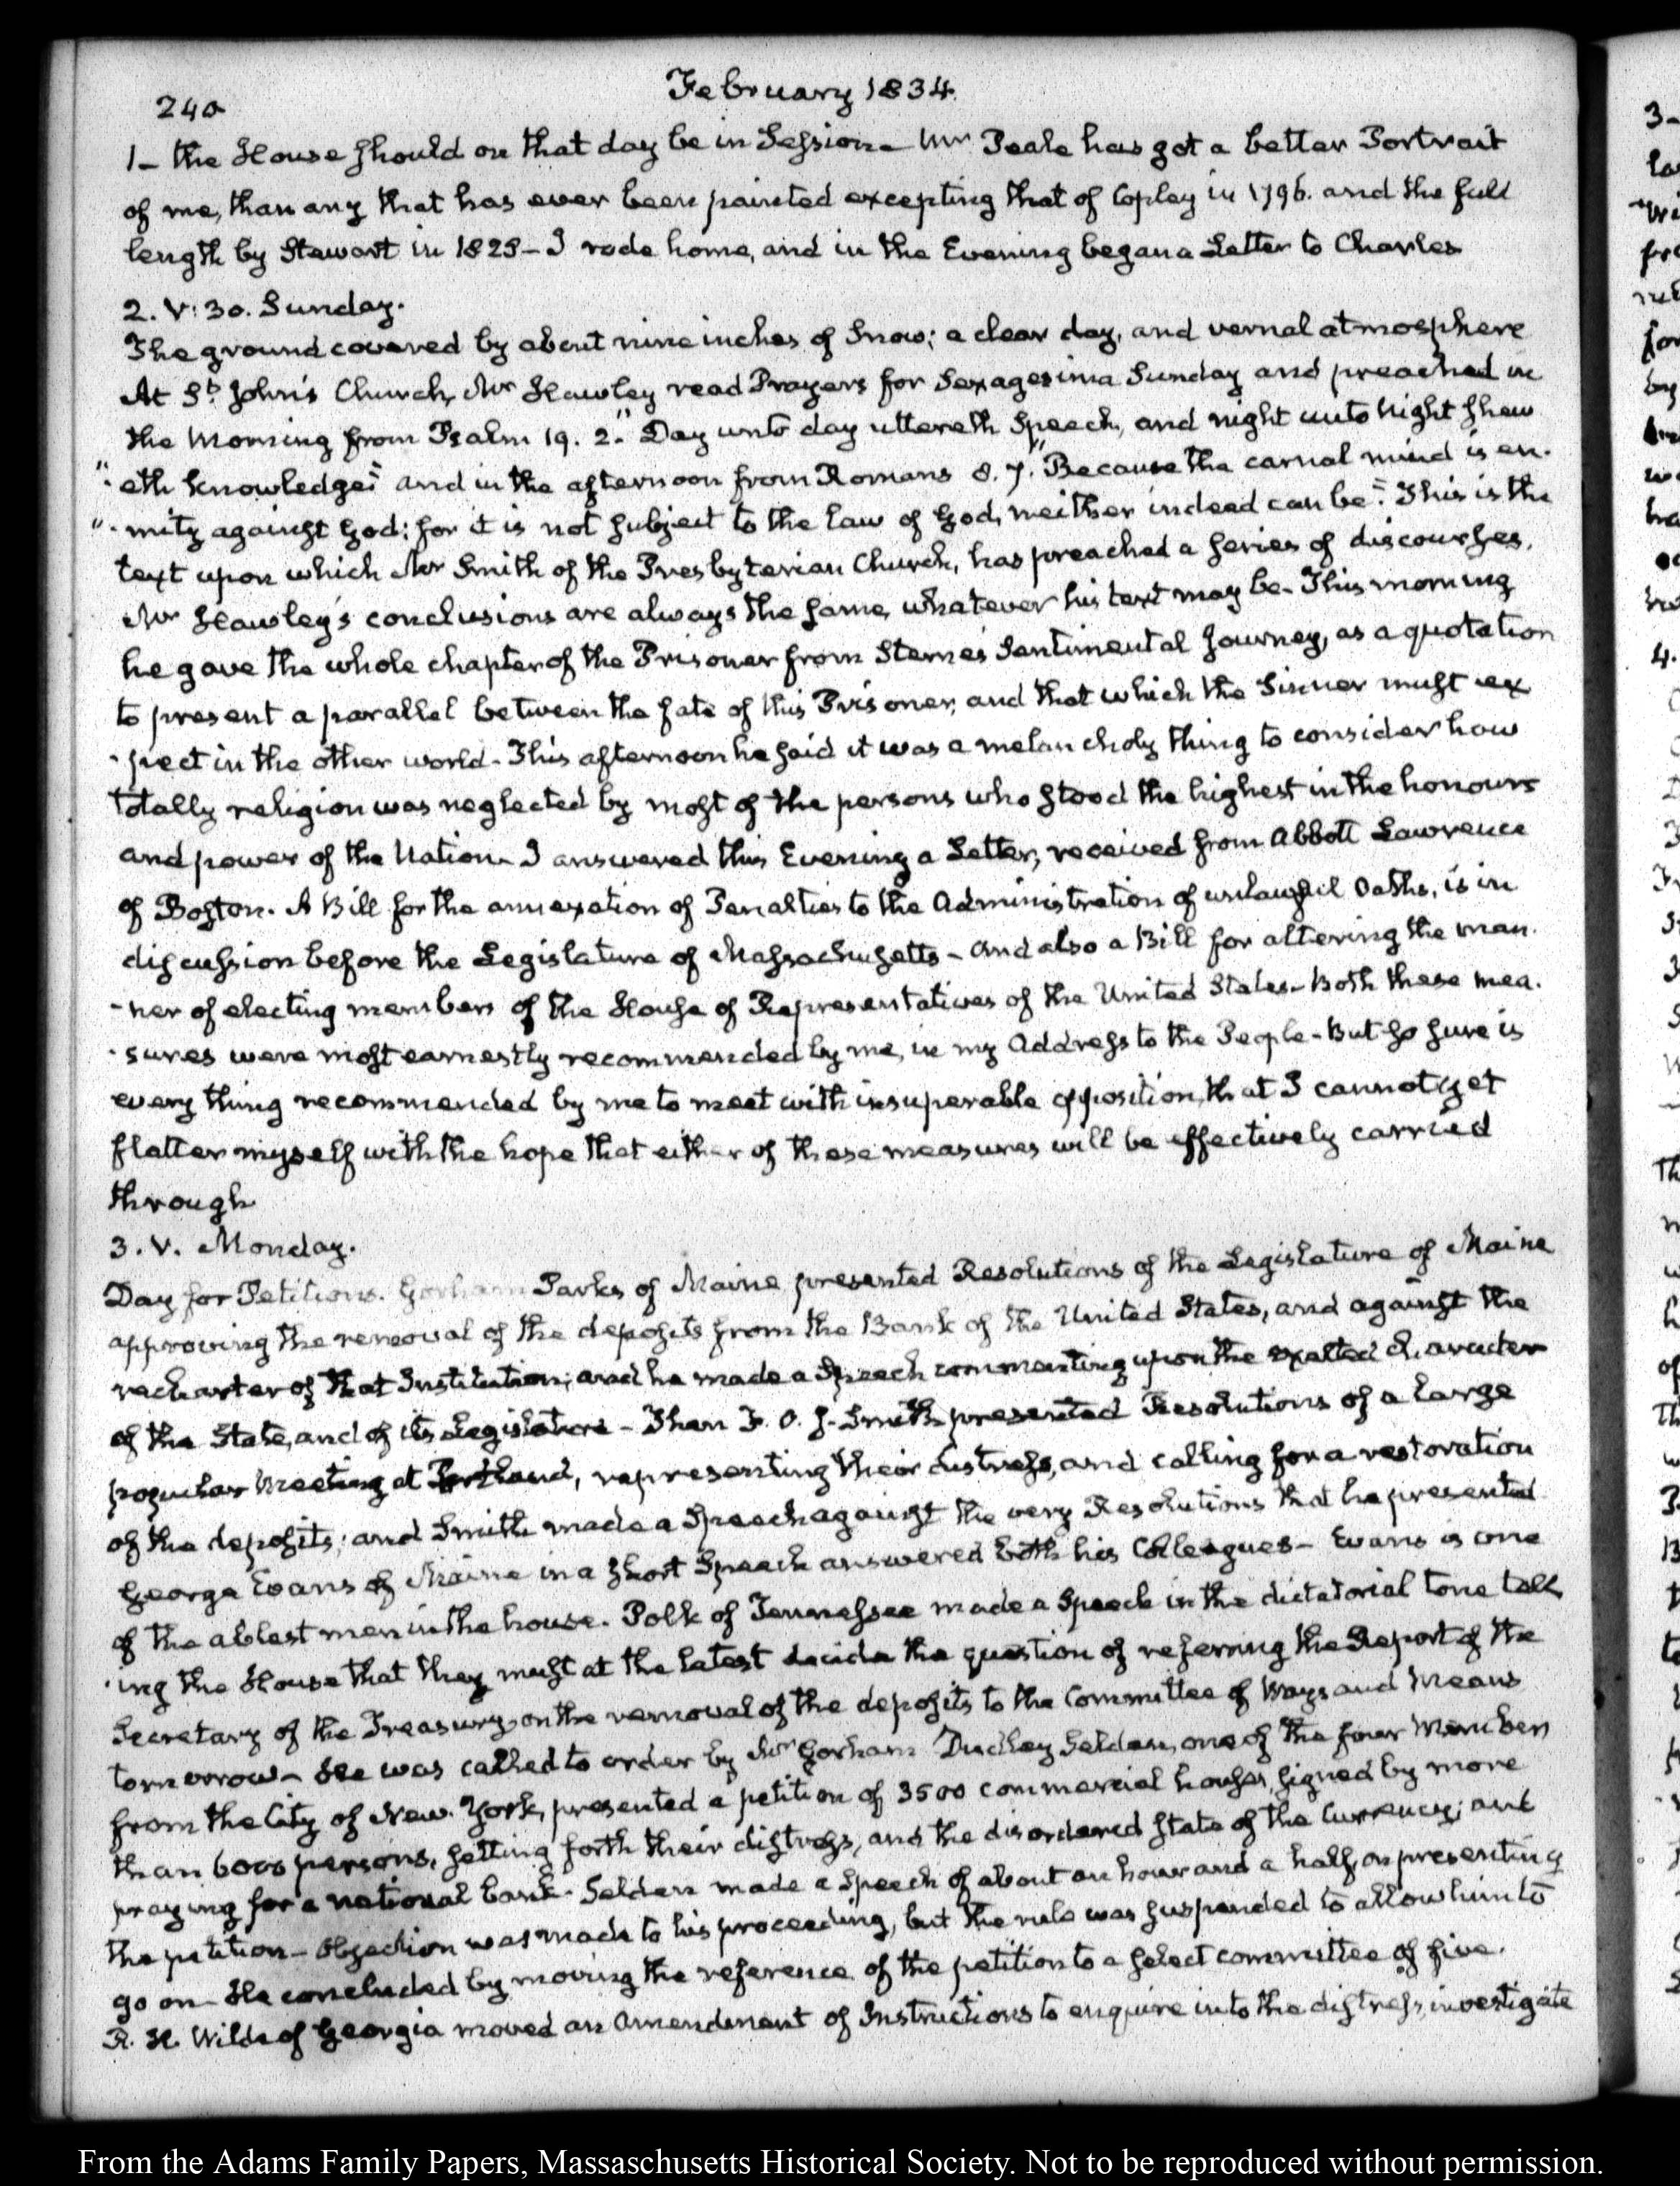 240
February 1834
1- the House should on that day be in Session- Mr Peale has got a better Portrait
of me, than any that has ever been painted excepting that of Copley in 1796. and the full
length by Stewart in 1825- I rode home, and in the Evening began a Letter to Charles
2. V:30. Sunday.
The ground covered by about nine inches of Snow; a clear day, and vernal atmosphere
At St John's Church, Mr Hawley read Prayers for Sexagesima Sunday and preached in
the Morning from Psalm 19. 2. "Day unto day uttereth Speech, and night unto Night shew
"-eth knowledge" and in the afternoon from Romans 8. 7. "Because the carnal mind is en-
"-mity against God: for it is not subject to the law of God, neither indeed can be". This is the
text upon which Mr Smith of the Presbyterian Church, has preached a series of discourses.
Mr Hawley's conclusions are always the same, whatever his text may be- This morning
he gave the whole chapter of the Prisoner from Sterne's Sentimental Journey, as a quotation
to present a parallel between the fate of this Prisoner, and that which the Sinner must ex
-pect in the other world- This afternoon he said it was a melancholy thing to consider how
totally religion was neglected by most of the persons who stood the highest in the honours
and power of the Nation- I answered this Evening a Letter, received from Abbott Lawrence
of Boston. A Bill for the annexation of Penalties to the Administration of unlawful Oaths, is in
discussion before the Legislature of Massachusetts- and also a Bill for altering the man-
-ner of electing members of the House of Representatives of the United States- Both these mea-
-sures were most earnestly recommended by me, in my Address to the People- But so sure is
every thing recommended by me to meet with insuperable opposition, that I cannot yet
flatter myself with the hope that either of these measures will be effectively carried
through
3. V. Monday.
Day for Petitions. Gorham Parks of Maine presented Resolutions of the Legislature of Maine
approving the removal of the deposits from the Bank of the United States, and against the
recharter of that Institution; and he made a Speech commenting upon the exalted character
of the State, and of its Legislature- Then F. O. J. Smith presented Resolutions of a large
popular Meeting at Portland, representing their distress, and calling for a restoration
of the deposits; and Smith made a Speech against the very Resolutions that he presented
George Evans of Maine in a short Speech answered both his Colleagues- Evans is one
of the ablest men in the house. Polk of Tennessee made a Speech in the dictatorial tone tell
-ing the House that they must at the latest decide the question of referring the Report of the
Secretary of the Treasury, on the removal of the deposits to the Committee of Ways and Means
tomorrow- He was called to order by Mr Gorham Dudley Selden, one of the four Members
from the City of New-York, presented a petition of 3500 commercial houses, signed by more
than 6000 persons, setting forth their distress, and the disordered state of the Currency; and
praying for a national bank- Selden made a Speech of about an hour and a half, on presenting
the petition- Objection was made to his proceeding, but the rule was suspended to allow him to
go on- He concluded by moving the reference of the petition to a select committee of five.
R. H. Wilde of Georgia moved an Amendment of Instructions to enquire into the distress, investigate
From the Adams Family Papers, Massaschusetts Historical Society. Not to be reproduced without permission.